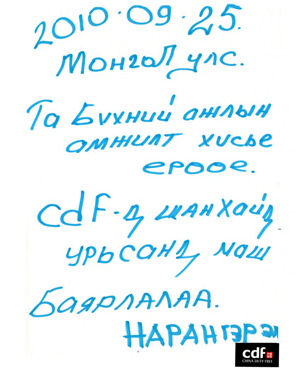 2010.09.25.
Монгол улс.
Та Бүхний ажлын
амжилт хүсье
ерөөе.
cdf-д шанхайд
урьсанд маш
Баярлалаа.
НАРАНГЭРЭЛ
cdf
CHINA DUTY FREE